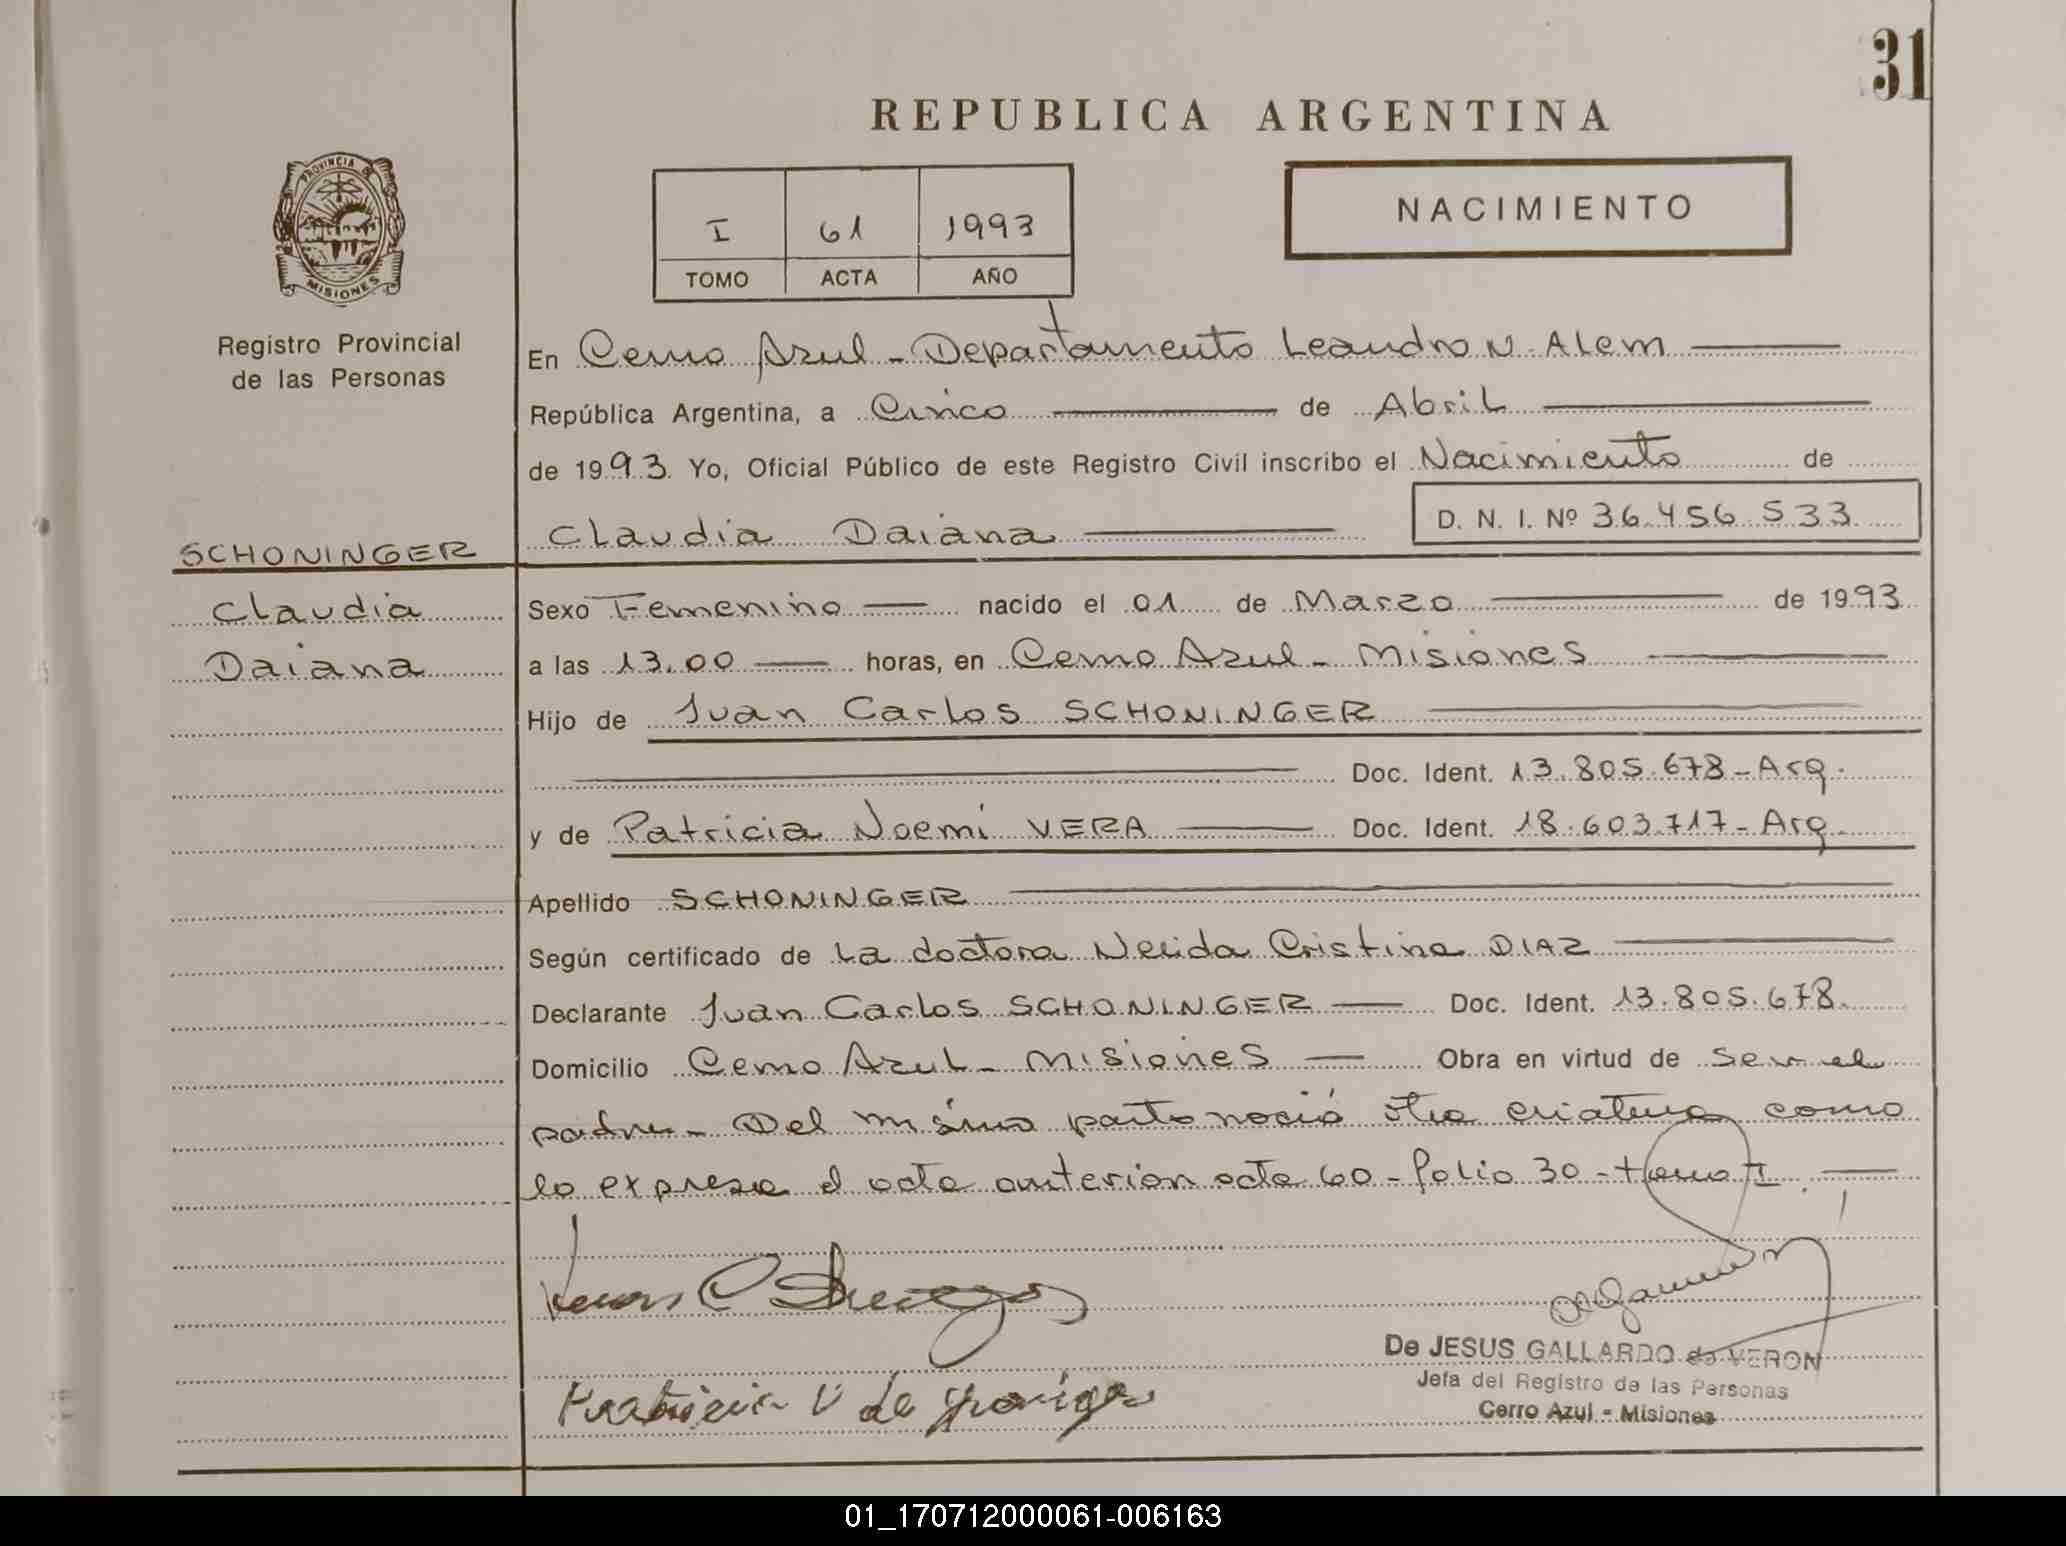 31
REPUBLICA ARGENTINA
PROVINCIA DE
MISIONES
I 61 1993
TOMO ACTA AÑO
NACIMIENTO
Registro Provincial
de las Personas
En Cerro Azul - Departamento Leandro N. Alem
República Argentina, a Cinco de Abril
de 1993. Yo, Oficial Público de este Registro Civil inscribo el Nacimiento de
Claudia Daiana D. N. I. Nº 36.456.533
SCHONINGER
Claudia
Daiana
Sexo Femenino nacido el 01 de Marzo de 1993
a las 13.00 horas, en Cerro Azul - Misiones
Hijo de Juan Carlos SCHONINGER
Doc. Ident. 13.805.678 - Arg.
y de Patricia Noemí VERA Doc. Ident. 18.603.717 - Arg.
Apellido SCHONINGER
Según certificado de La doctora Nelida Cristina DIAZ
Declarante Juan Carlos SCHONINGER Doc. Ident. 13.805.678.
Domicilio Cerro Azul - Misiones Obra en virtud de ser el
padre - Del mismo parto nació otra criatura como
lo expresa el acta anterior acta 60 - folio 30 - tomo I.
Patricia V de
De JESUS GALLARDO de VERON
Jefa del Registro de las Personas
Cerro Azul - Misiones
01_170712000061-006163